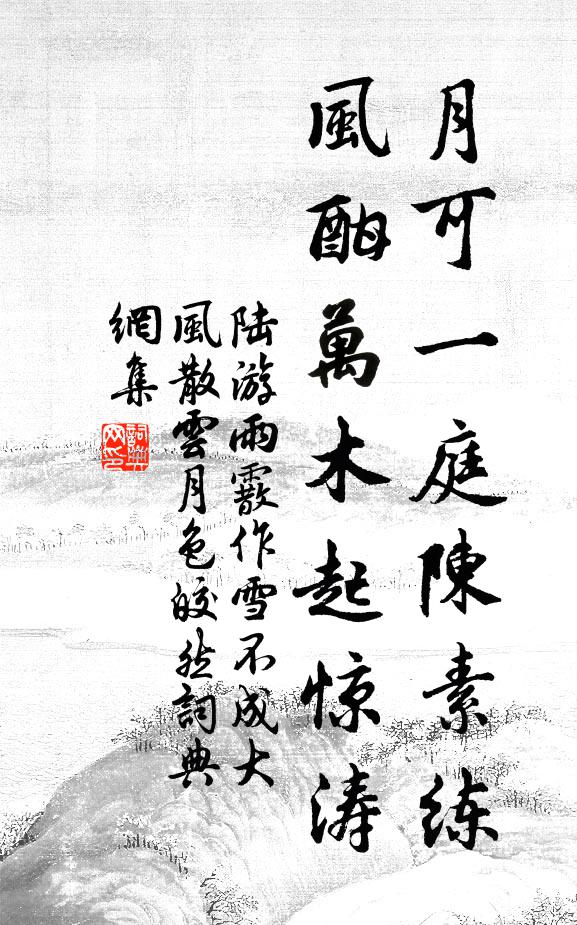 月可一庭陳素练
風酣萬木起惊涛
陆游雨霰作雪不成大
風散雲月色皎然詞典
網集